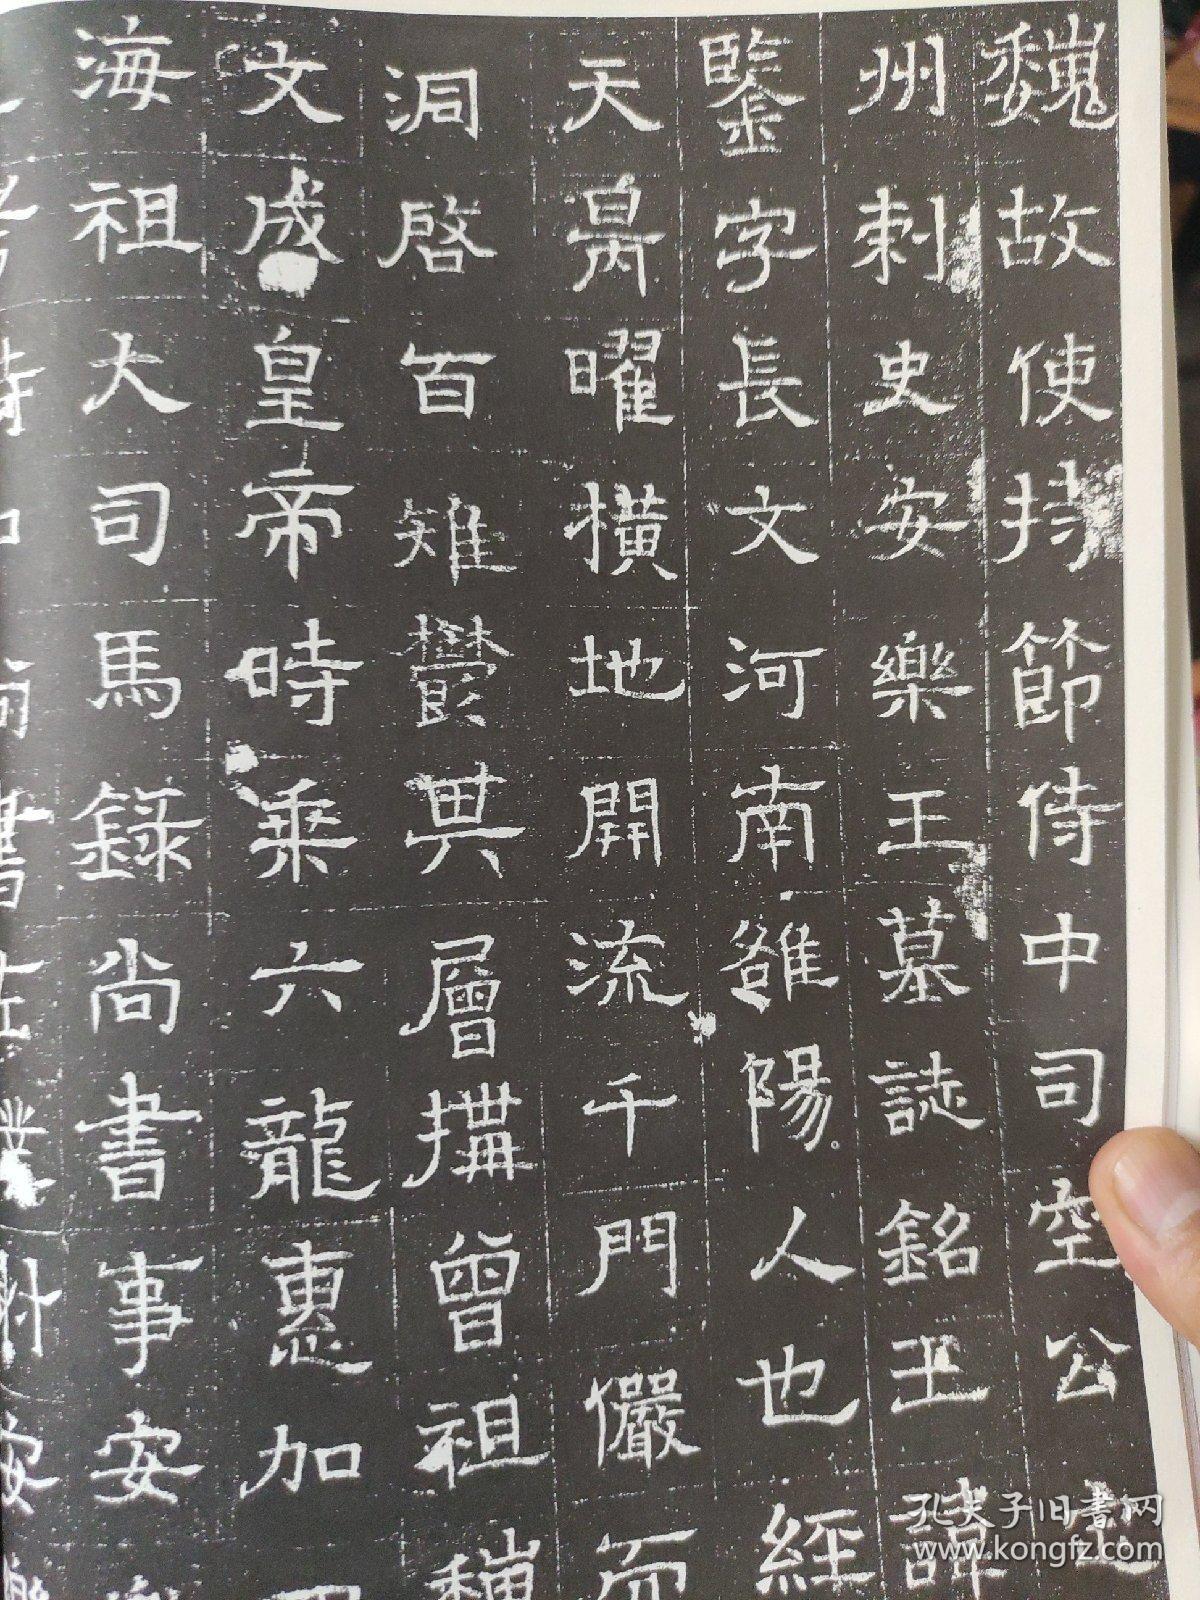 魏故使持節侍中司空公
州刺史安樂王墓誌銘王諱
鑒字長文河南雒陽人也經
天昺曜橫地開流千門儼而
洞啓百雉鬱其層搆曾祖
文成皇帝時乘六龍惠加
海祖大司馬錄尚書事安
孔夫子旧書网
www.kongfz.com